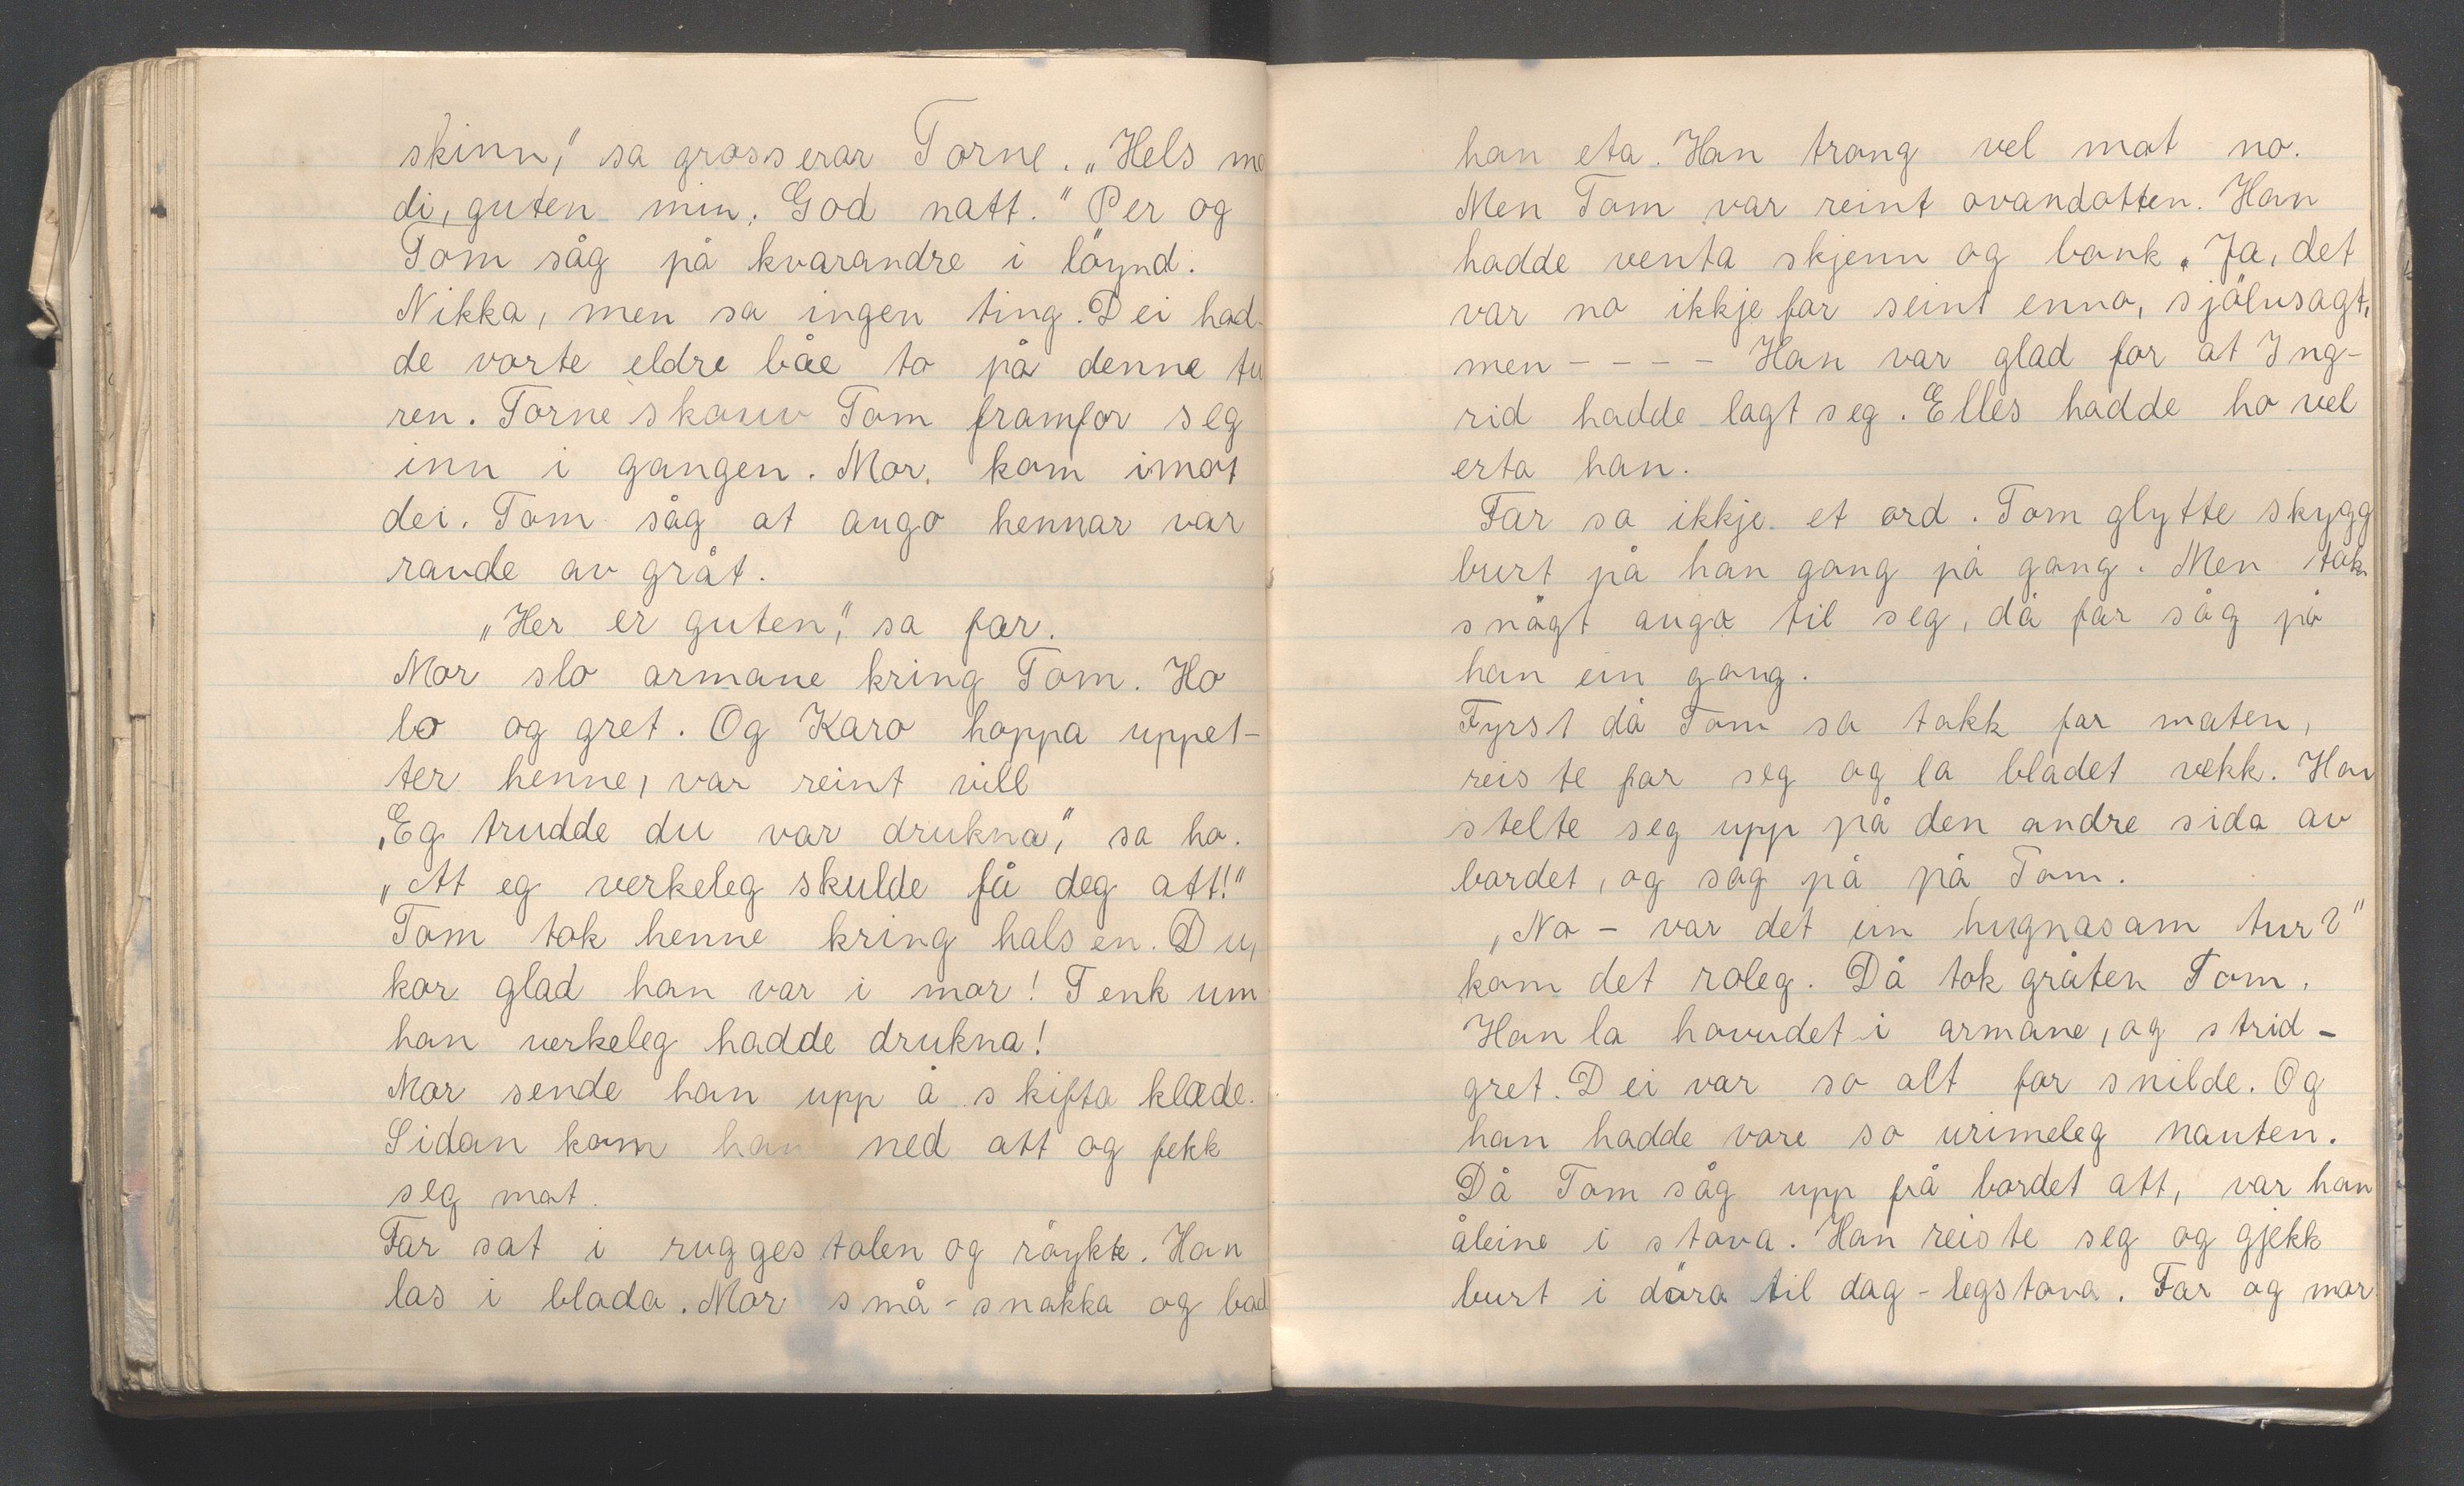 skinn," sa grosserar Torne. „Hels mo
di, guten min. God natt." Per og
Tom såg på kvarandre i löynd.
Nikka, men sa ingen ting. Dei had-
de vorte eldre båe to på denne tu
ren. Torne skauv Tom framfor seg
inn i gangen. Mor. kom imot
dei. Tom såg at augo hennar var
raude av gråt.
„Her er guten," sa far.
Mor slo armane kring Tom. Ho
lo og gret. Og Karo hoppa uppet-
ter henne, var reint vill
„Eg trudde du var drukna," sa ho.
„At eg verkeleg skulde få deg att!"
Tom tok henne kring halsen. Du,
kor glad han var i mor! Tenk um
han verkeleg hadde drukna!
Mor sende han upp å skifta klæde.
Sidan kom han ned att og fekk
seg mat.
Far sat i ruggestolen og röykte. Han
las i blada. Mor små-snakka og bad
han eta. Han trong vel mat no.
Men Tom var reint ovandotten. Han
hadde venta skjenn og bank. Ja, det
var no ikkje for seint enno, sjölvsagt,
men - - - - Han var glad for at Ing-
rid hadde lagt seg. Elles hadde ho vel
erta han.
Far sa ikkje et ord. Tom glytte skygg
burt på han gong på gong. Men tok
snögt augo til seg, då far såg på
han ein gong.
Fyrst då Tom sa takk for maten,
reiste far seg og la bladet vekk. Han
stelte seg upp på den andre sida av
bordet, og såg på på Tom.
„No - var det ein hugnasam tur?"
kom det roleg. Då tok gråten Tom.
Han la hovudet i armane, og strid-
gret. Dei var so alt for snilde. Og
han hadde vore so urimeleg nauten.
Då Tom såg upp frå bordet att, var han
åleine i stova. Han reiste seg og gjekk
burt i döra til dag-legstova. Far og mor